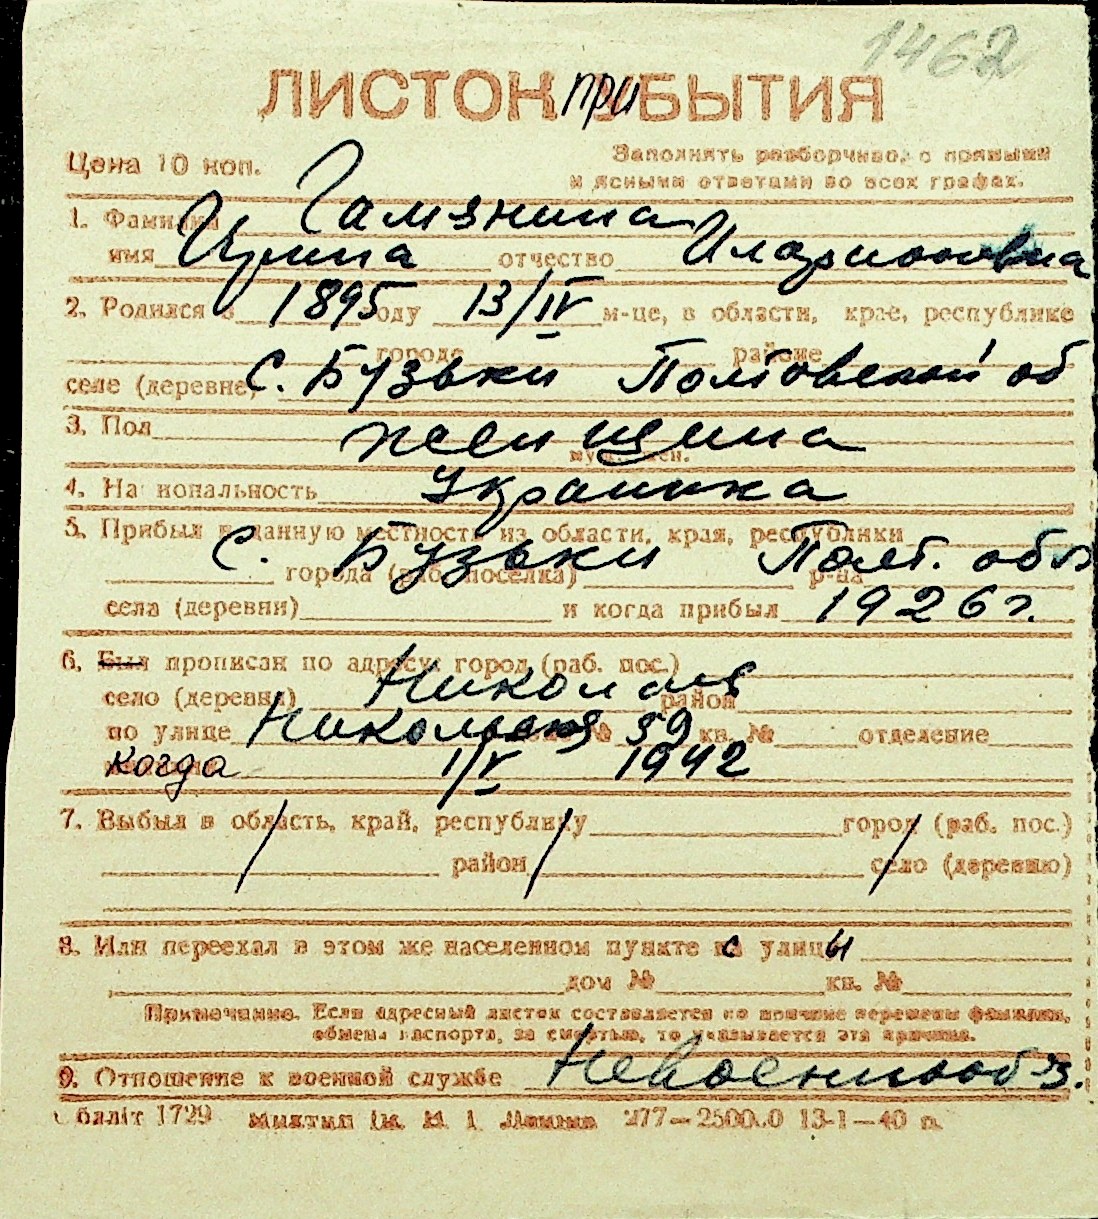 1462
ЛИСТОК ПРИБЫТИЯ
Цена 10 коп.
Заполнять разборчиво, с прямыми
и ясными ответами во всех графах.
1. Фамилия Гамянина
имя Ирина отчество Иларионовна
2. Родился в 1895 году 13/IV м-це, в области, крае, республике
города районе
селе (деревне) с. Бузьки Полтовской об
3. Пол женщина
4. Национальность Украинка
5. Прибыл в данную местность из области, края, республики
с. Бузьки Полт. обл
города (раб. поселка) р-на
села (деревни) и когда прибыл 1926 г.
6. Был прописан по адресу: город (раб. пос.)
село (деревня) Николаев район
по улице Никольская № 59 кв. № отделение
когда 1/V 1942
7. Выбыл в область, край, республику город (раб. пос.)
район село (деревню)
8. Или переехал в этом же населенном пункте с улицы
дом № кв. №
Примечание. Если адресный листок составляется по причине перемены фамилии,
обмена паспорта, за смертью, то указывается эта причина.
9. Отношение к военной службе Невоеннообяз.
Облліт 1729 277—2500.0 13-1—40 р.